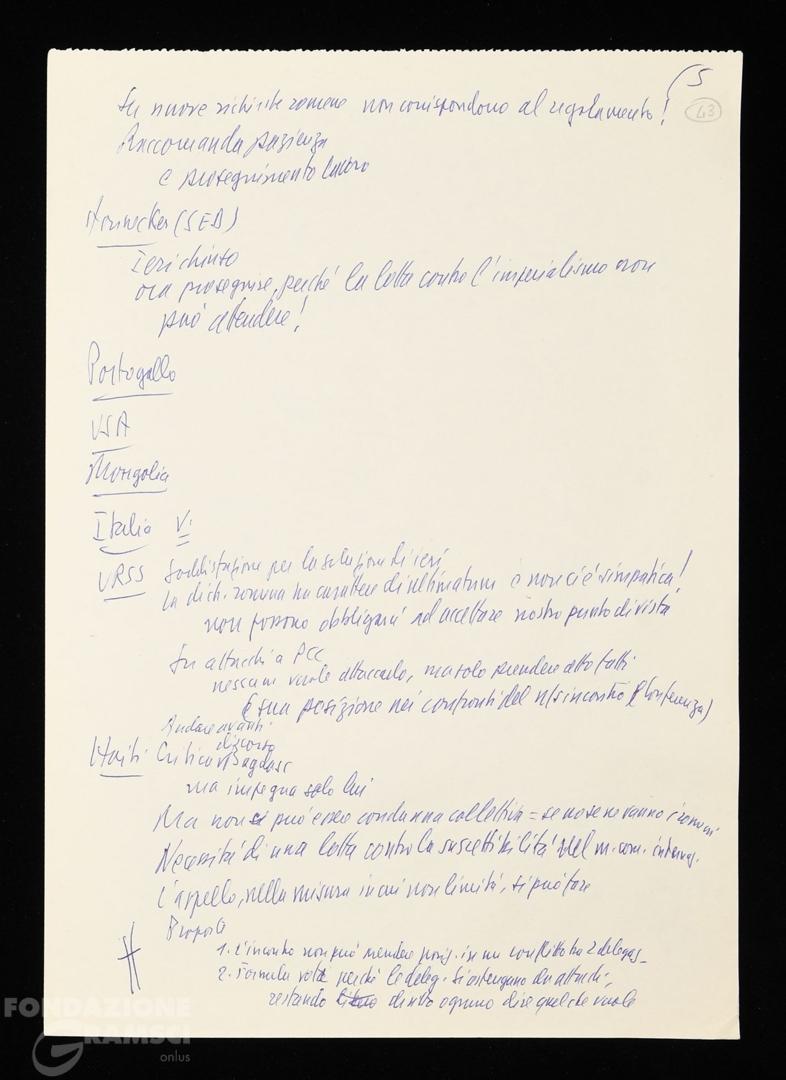 (5
43
Su nuove richieste romene non corrispondono al regolamento!
Raccomanda pazienza
e proseguimento lavoro
Honnecker (SED)
Ieri chiuso
ora proseguire, perché la lotta contro l'imperialismo non
può attendere!
Portogallo
USA
Mongolia
Italia V.
URSS Soddisfazione per la soluzione di ieri
La dich. romena ha carattere di ultimatum e non ci è simpatica!
non possono obbligarci ad accettare nostro punto di vista
Su attacchi a PCC
nessuno vuole attaccarlo, ma solo prendere atto fatti
e sua posizione nei confronti del n/s incontro (Conferenza)
Andare avanti
Haiti Criticare discorso Bagdasc
ma impegna solo lui
Ma non si può condanna collettiva = se no se ne vanno i romeni
Necessità di una lotta contro la suscettibilità del m. com. internaz.
L'appello, nella misura in cui non limita, si può fare
Proposte
1. L'incontro non può prendere posiz. in un conflitto tra 2 delegaz.
2. Formula perché le deleg. si astengano da attacchi,
restando diritto ognuno dire quel che vuole
FONDAZIONE
GRAMSCI
onlus